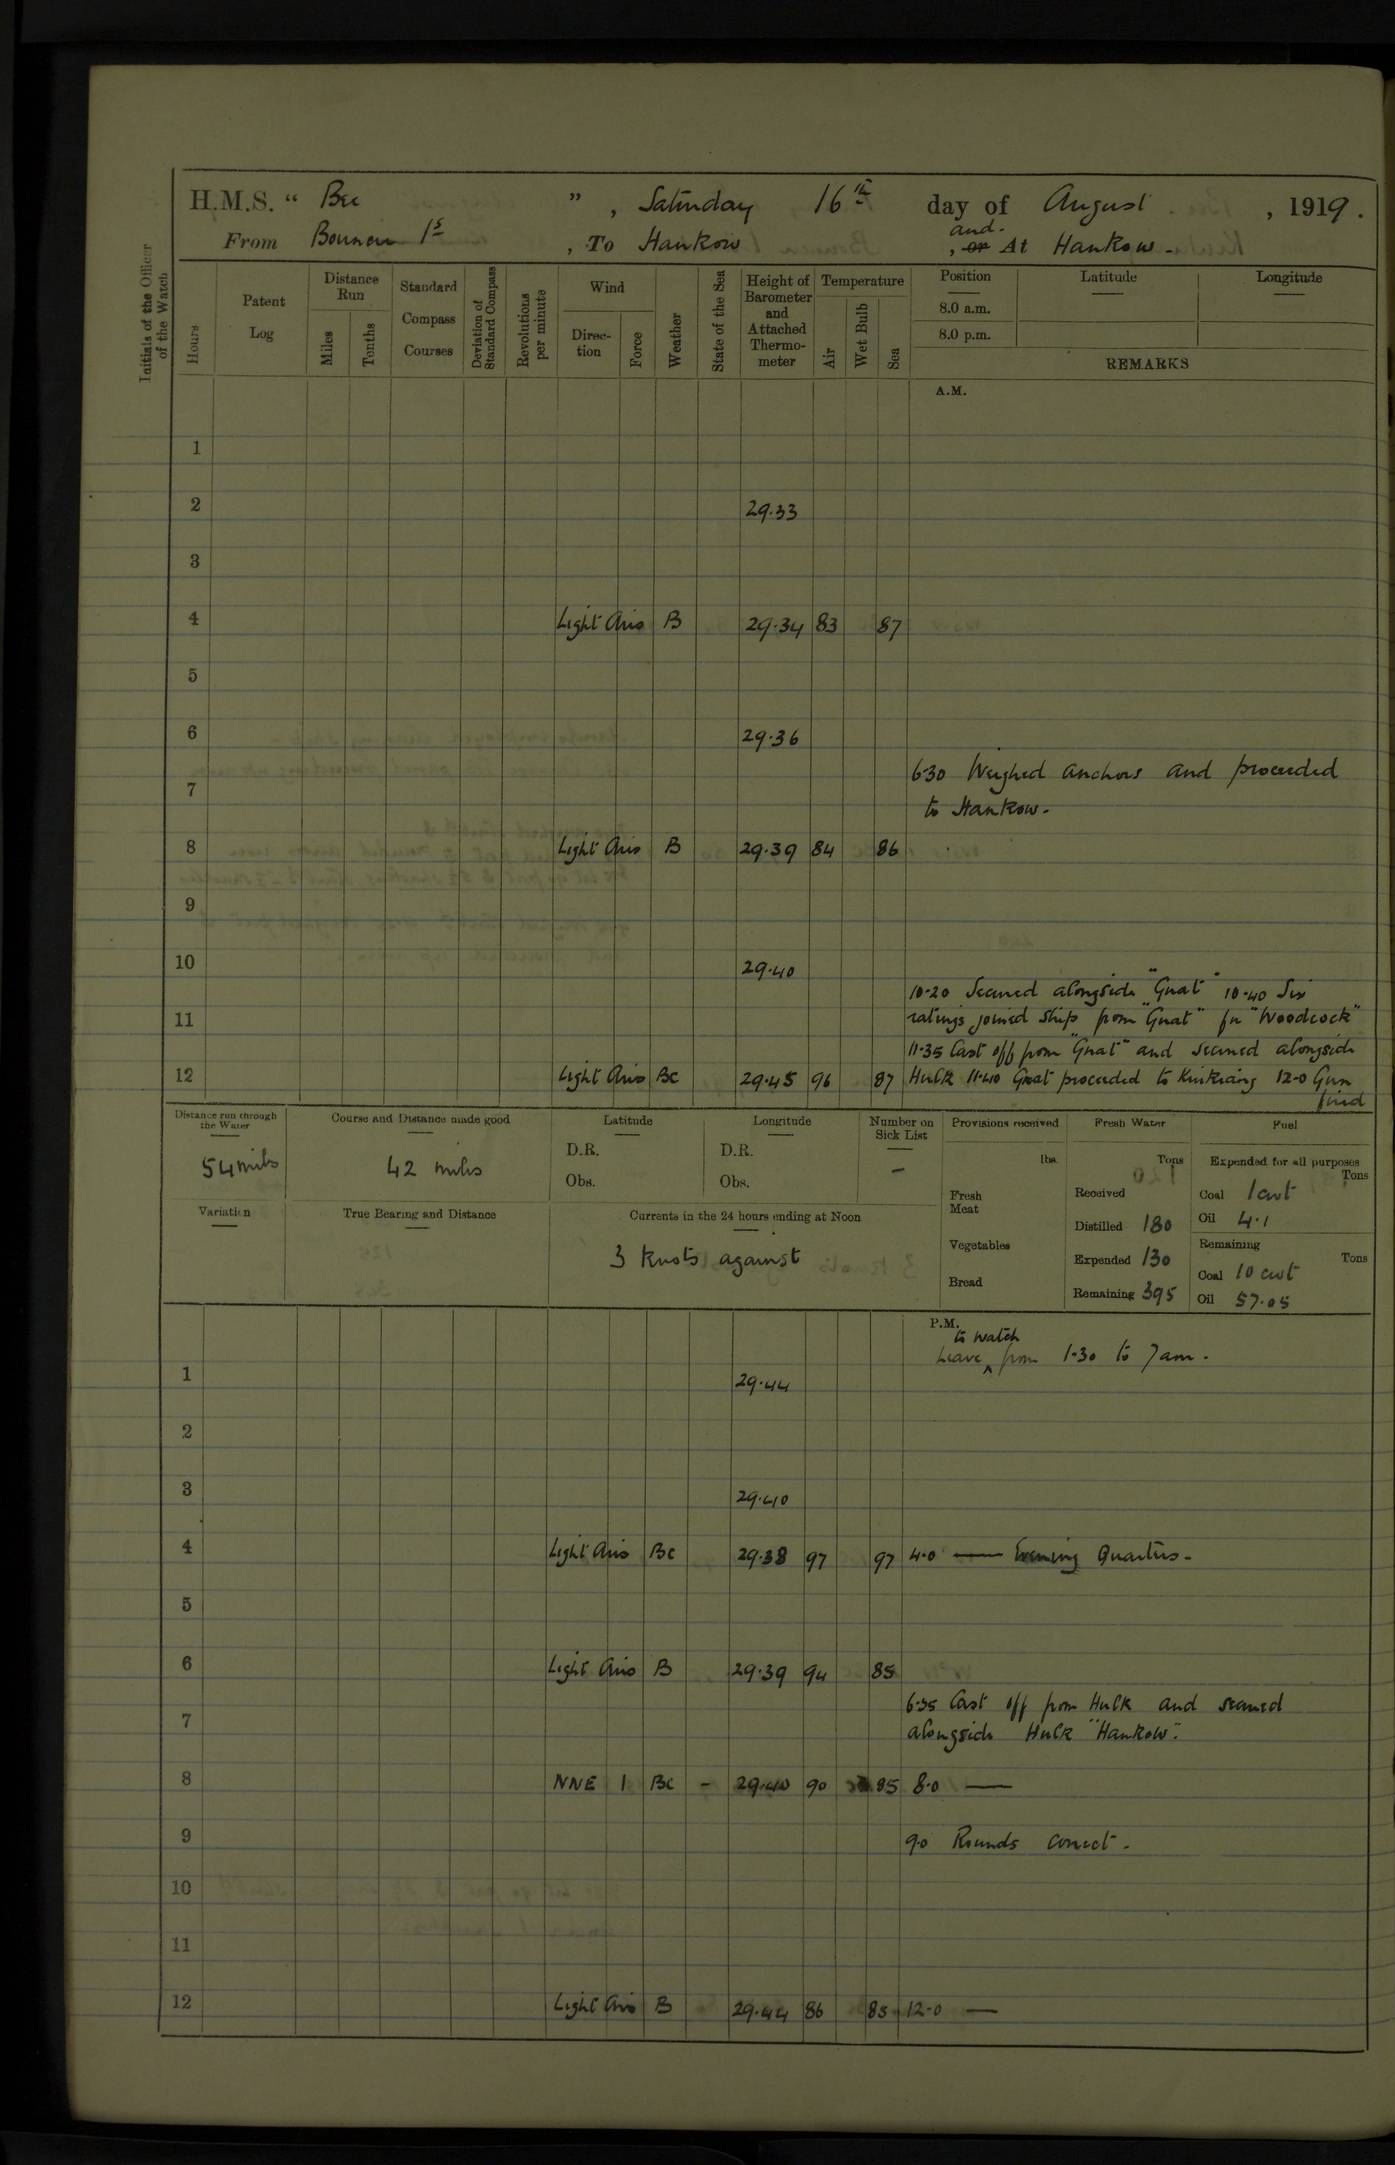 H.M.S. " Bee ", Saturday 16th day of August, 1919.
From Bouncer Is, To Hankow and, or At Hankow.
Initials of the Officer of the Watch
Hours
Patent Log
Distance Run
Miles
Tenths
Standard Compass Courses
Deviation of Standard Compass
Revolutions per minute
Wind
Direction
Force
Weather
State of the Sea
Height of Barometer and Attached Thermometer
Temperature
Air
Wet Bulb
Sea
Position
Latitude
Longitude
8.0 a.m.
8.0 p.m.
REMARKS
A.M.
1
2 29.33
3
4 Light Airs B 29.34 83 87
5
6 29.36
6.30 Weighed anchors and proceeded
7
to Hankow.
8 Light Airs B 29.39 84 86
9
10 29.40
10.20 Secured alongside "Gnat" 10.40 Six
11 ratings joined ship from "Gnat" for "Woodcock"
11.35 Cast off from "Gnat" and secured alongside
12 Light Airs BC 29.45 96 87 Hulk 11.40 Gnat proceeded to Kiukiang 12.0 Gun
fired
Distance run through the Water
54 miles
Course and Distance made good
42 miles
Latitude
D.R.
Obs.
Longitude
D.R.
Obs.
Number on Sick List
-
Provisions received
lbs.
Fresh Meat
Vegetables
Bread
Fresh Water
Tons
Received
Distilled 180
Expended 130
Remaining 395
Fuel
Expended for all purposes
Tons
Coal 1 cwt
Oil 4.1
Remaining
Tons
Coal 10 cwt
Oil 57.05
Variation
True Bearing and Distance
Currents in the 24 hours ending at Noon
3 knots against
P.M.
to watch
Leave ^ from 1.30 to 7am.
1 29.44
2
3 29.40
4 Light Airs BC 29.38 97 97 4.0 — Evening Quarters.
5
6 Light Airs B 29.39 94 85
6.35 Cast off from Hulk and secured
7
alongside Hulk "Hankow".
8 NNE 1 BC - 29.40 90 85 8.0 —
9 9.0 Rounds correct.
10
11
12 Light Airs B 29.44 86 85 12.0 —